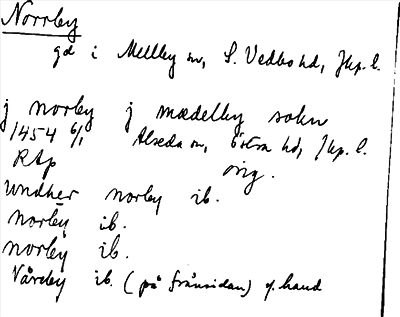 Norrby
gd i Mellby sn, S. Vedbo hd, Jkp. l.
j norby j mædelby sokn
1454 6/1 Alseda sn, Östra hd, Jkp. l.
RAp orig.
vndher norby ib.
norby ib.
norby ib.
Nårby ib. (på frånsidan) y. hand